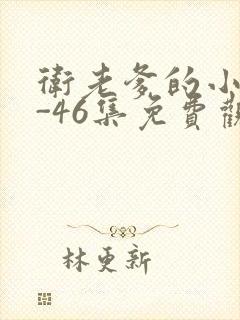 衛老爹的小
-46集免費觀
林更新